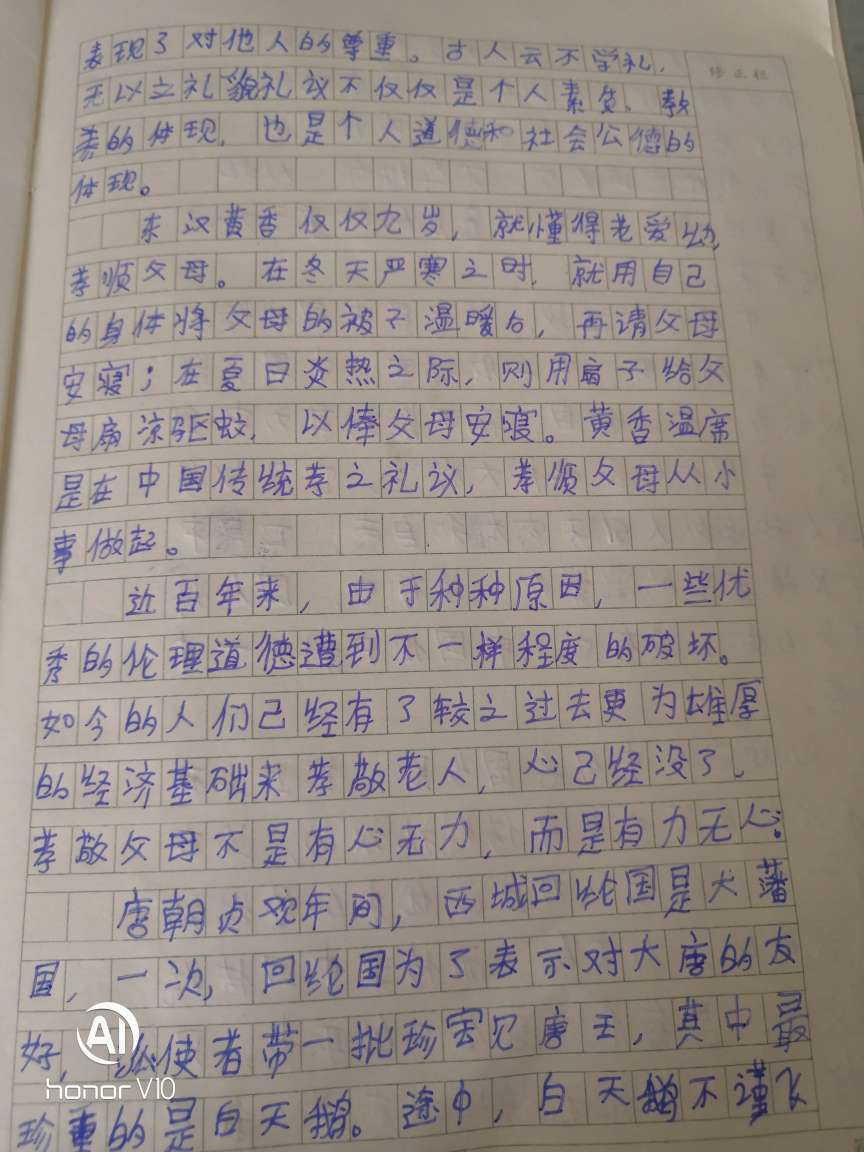 表现了对他人的尊重。古人云不学礼,
修正栏
无以立礼貌礼议不仅仅是个人素质、教
养的体现,也是个人道德和社会公德的
体现。
东汉黄香仅仅九岁,就懂得老爱幼,
孝顺父母。在冬天严寒之时,就用自己
的身体将父母的被子温暖后,再请父母
安寝;在夏日炎热之际,则用扇子给父
母扇凉驱蚊,以俸父母安寝。黄香温席
是在中国传统孝之礼议,孝顺父母从小
事做起。
近百年来,由于种种原因,一些优
秀的伦理道德遭到不一样程度的破坏。
如今的人们己经有了较之过去更为雄厚
的经济基础来孝敬老人,心己经没了,
孝敬父母不是有心无力,而是有力无心。
唐朝贞观年间,西城回纶国是大藩
国,一次,回纶国为了表示对大唐的友
好,派使者带一批珍宝见唐王,其中最
珍重的是白天鹅。途中,白天鹅不谨飞
AI
honor V10